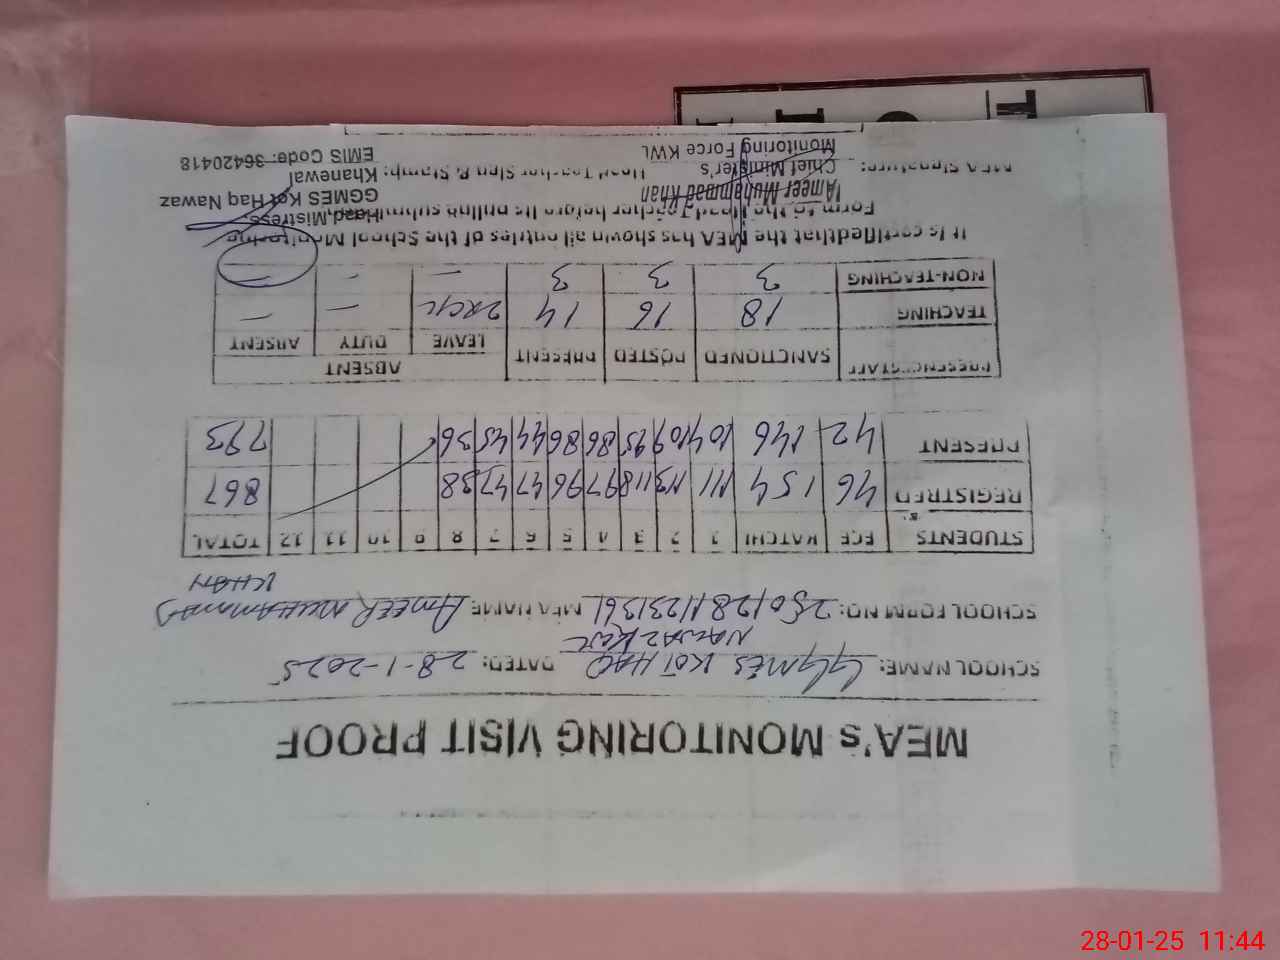 MEA's MONITORING VISIT PROOF
SCHOOL NAME: GGMES KOT HAQ NAWAZ KWL DATED: 28-1-2025
SCHOOL FORM NO: MEA NAME AMEER MUHAMMAD KHAN
STUDENTS ECE KATCHI 1 2 3 4 5 6 7 8 9 10 11 12 TOTAL
REGISTRED 46 154 111 113 118 97 96 47 47 38 867
PRESENT 42 146 104 109 95 86 86 44 45 36 793
ABSENT
SANCTIONED POSTED PRESENT LEAVE DUTY ABSENT
TEACHING 18 16 14 — —
NON-TEACHING 3 3 3 — — —
It is certified that the MEA has shown all entries of the School Monitoring
Form to the Head Teacher before its online
MEA Signature:
Ameer Muhammad Khan
Chief Minister's
Monitoring Force KWL
Head Teacher Sign & Stamp:
Head Mistress
GGMES Kot Haq Nawaz
Khanewal
EMIS Code: 36420418
28-01-25 11:44